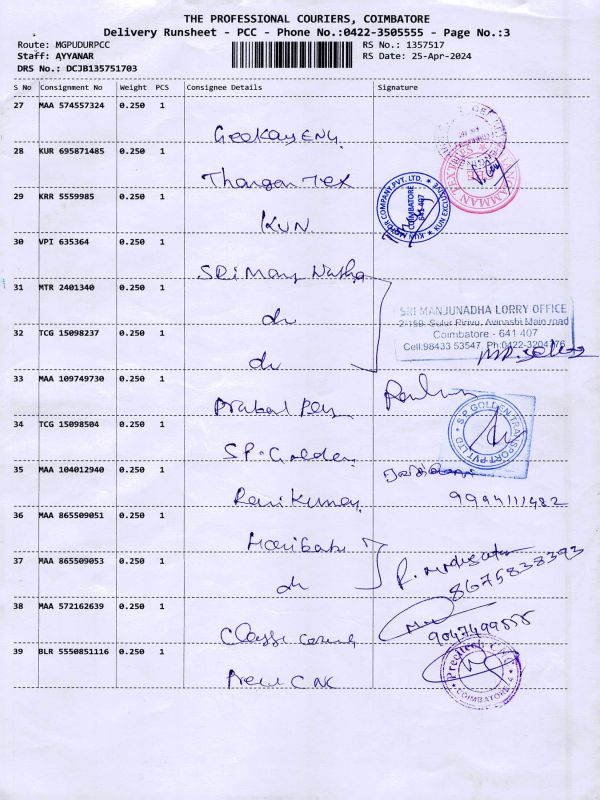 THE PROFESSIONAL COURIERS, COIMBATORE
Delivery Runsheet - PCC - Phone No.:0422-3505555 - Page No.:3
Route: MGPUDURPCC RS No.: 1357517
Staff: AYYANAR RS Date: 25-Apr-2024
DRS No.: DCJB135751703
S No Consignment No Weight PCS Consignee Details Signature
27 MAA 574557324 0.250 1
Geekay ENG.
28 KUR 695871485 0.250 1
Thangam Tex
TEXTILES
29 KRR 5559985 0.250 1
KUN
KUN MOTOR COMPANY PVT. LTD. COIMBATORE 641 407 KUN EXCLUSIVE
30 VPI 635364 0.250 1
SRi Manjunatha
31 MTR 2401340 0.250 1
do
SRI MANJUNADHA LORRY OFFICE
2/159, Sulur Pirivu, Avinashi Main road
Coimbatore - 641 407
Cell:98433 53547, Ph:0422-3204776
32 TCG 15098237 0.250 1
do
33 MAA 109749730 0.250 1
34 TCG 15098504 0.250 1
S.P. Golden
S.P. GOLDEN TRANSPORT PVT LTD
35 MAA 104012940 0.250 1
Ravi Kumar
9994111482
36 MAA 865509051 0.250 1
Haribabu
37 MAA 865509053 0.250 1
do
8675838393
38 MAA 572162639 0.250 1
9047499555
39 BLR 5550851116 0.250 1
CNC
COIMBATORE